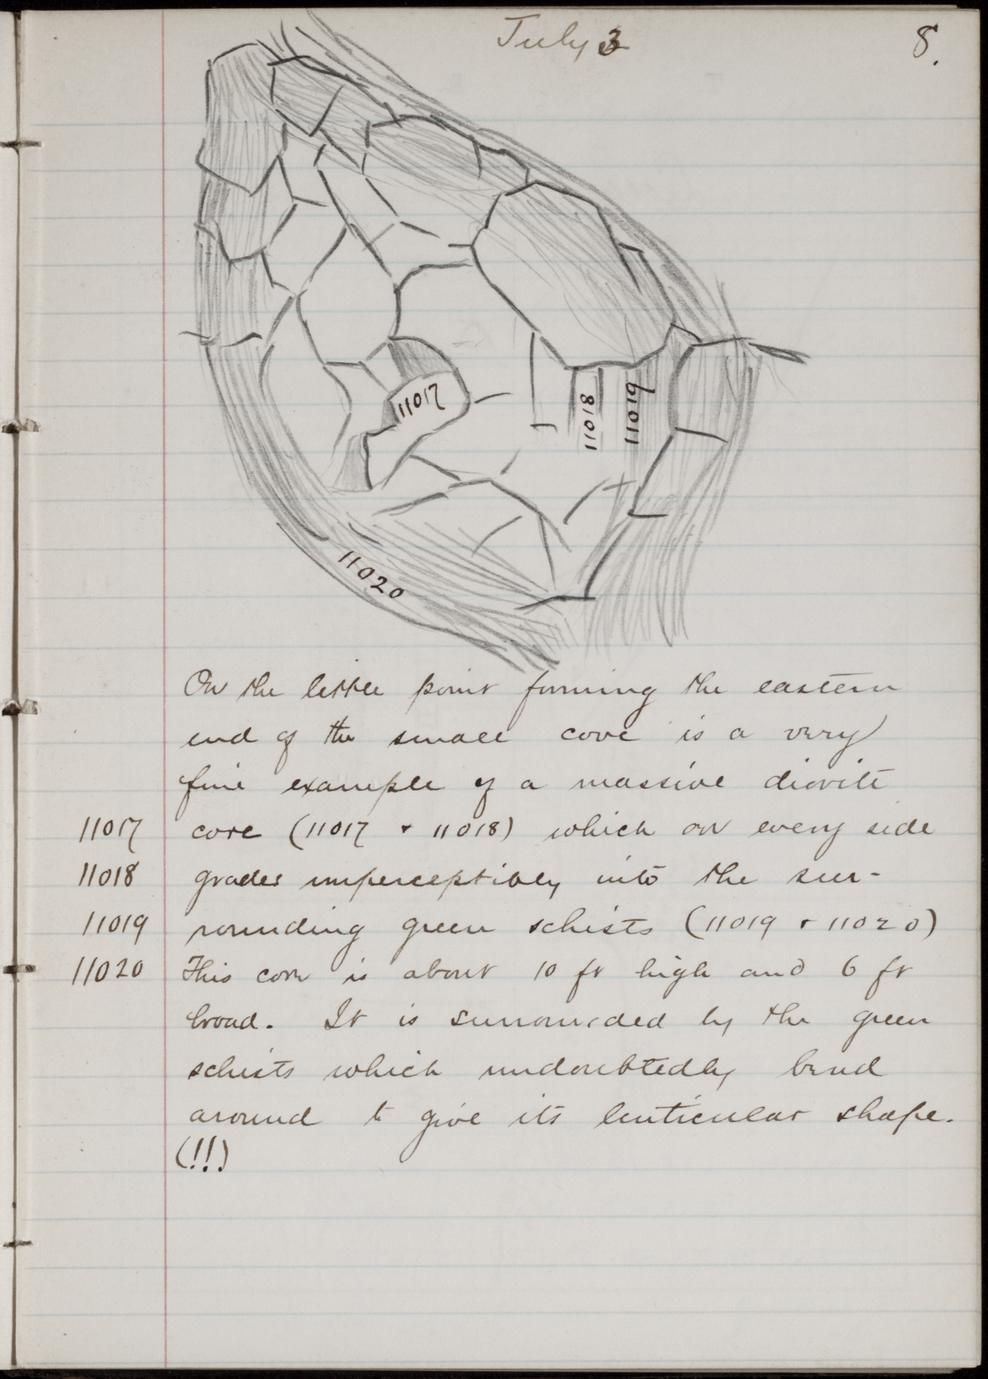 July 3
8.
11017
11018
11019
11020
On the little point forming the eastern
end of the small cove is a very
fine example of a massive diorite
11017 core (11017 + 11018) which on every side
11018 grades imperceptibly into the sur-
11019 rounding green schists (11019 + 11020)
11020 This core is about 10 ft high and 6 ft
broad. It is surrounded by the green
schists which undoubtedly bend
around to give its lenticular shape.
(!!)